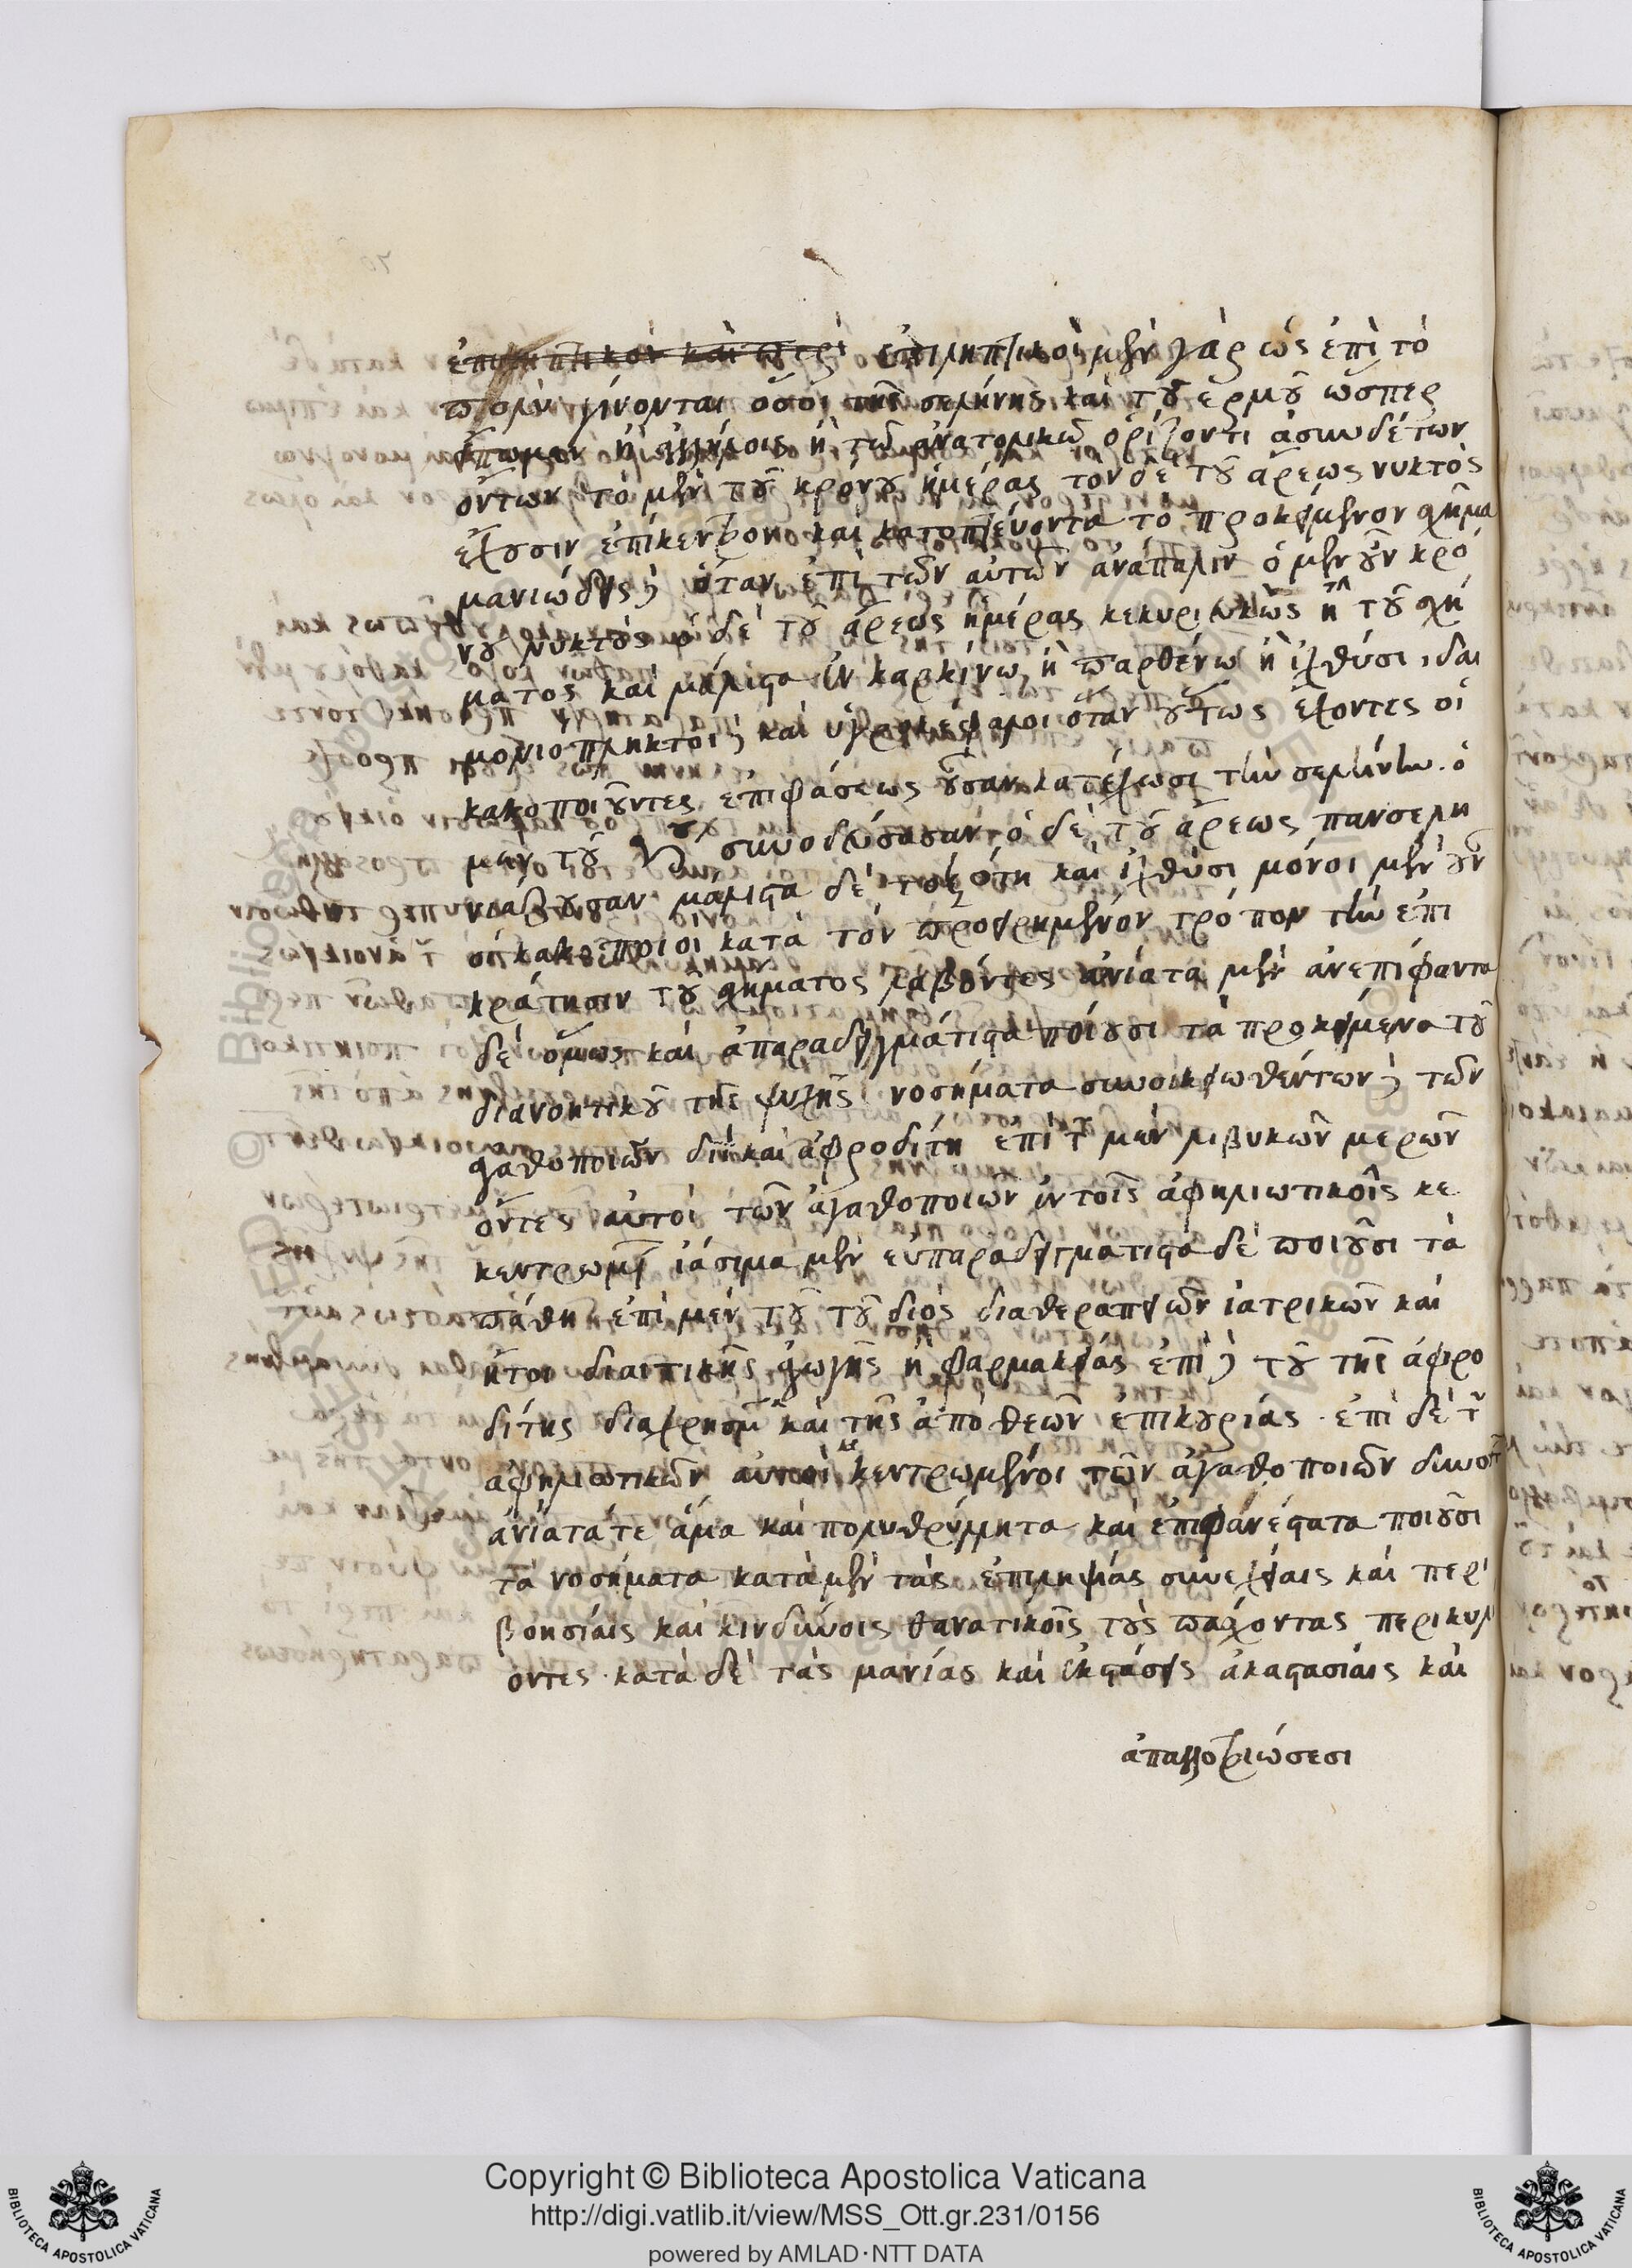 ἐπιληπτικὸν καὶ περὶ ἐπιληπτικοὶ μὲν γὰρ ὡς ἐπὶ τὸ
πολὺ γίνονται ὅσοι τῆς σελήνης καὶ τοῦ ἑρμοῦ ὥσπερ
ἔπωμεν ἢ ἀλλήλοις ἢ τῶ ἀνατολικῶ ὁρίζοντι ἀσυνδέτων
ὄντων τὸ μὲν τοῦ κρόνου ἡμέρας τὸν δὲ τοῦ ἄρεως νυκτὸς
ἔχουσιν ἐπίκεντρον καὶ κατοπτεύοντα τὸ προκείμενον σχῆμα
μανιώδεις δὲ ὅταν ἐπὶ τῶν αὐτῶν ἀνάπαλιν ὁ μὲν οὖν κρό
νου νυκτὸς ὁ δὲ τοῦ ἄρεως ἡμέρας κεκυριευκὼς ἦ τοῦ σχή
ματος καὶ μάλιστα ἐν καρκίνω ἢ παρθένω ἢ ἰχθύσι, δαι
μονιοπληκτοι δὲ καὶ ὑγροκέφαλοι ὅταν οὕτως ἔχοντες οἱ
κακοποιοῦντες ἐπιφάσεως οὖσαν κατέχωσι τὴν σελήνην. ὁ
μὲν τοῦ ♄ συνοδεύσασαν ὁ δὲ τοῦ ἄρεως πανσελη
νιάζουσαν μάλιστα δὲ τοξότη καὶ ἰχθύσι μόνοι μὲν οὖν
οἱ κακοποιοι κατὰ τὸν προειρημένον τρόπον τὴν ἐπι
κράτησιν τοῦ σχήματος λαβόντες ἀνίατα μὲν ἀνεπίφαντα
δὲ ὅμως καὶ ἀπαραδειγμάτιστα ποίουσι τὰ προκείμενα τοῦ
διανοητικοῦ τῆς ψυχῆς νοσήματα συνοικειωθέντων δὲ τῶν
γαθοποιῶν διὶ καὶ ἀφροδίτη ἐπὶ τ̃ μὲν λιβυκῶν μερῶν
ὄντες αὐτοὶ τῶν ἀγαθοποιῶν ἐν τοῖς ἀφηλιωτικοῖς κε
κεντρωμ̃ ἰάσιμα μὲν εὐπαραδειγματιστα δὲ ποιοῦσι τὰ
πάθη ἐπὶ μὲν τοῦ τοῦ διὸς διαθεραπειῶν ἰατρικῶν καὶ
ἤτοι διαιτικῆς ἀγωγῆς ἢ φαρμακείας ἐπὶ δὲ τοῦ τῆς ἀφρο
δίτης διαχρησμ̃ καὶ τῆς ἀπὸ θεῶν ἐπικουρίας. ἐπὶ δὲ τ̃
ἀφηλιωτικῶν αὐτοὶ κεκεντρωμένοι τῶν ἀγαθοποιῶν δυνοτ̃
ἀνίατά τε ἅμα καὶ πολυθρύλλητα καὶ ἐπιφανέστατα ποιοῦσι
τὰ νοσήματα κατὰ μὲν τὰς ἐπιληψίας συνεχείαις καὶ περι
βοησίαις καὶ κινδύνοις θανατικοῖς τοὺς πάσχοντας περικυλ
οντες. κατὰ δὲ τὰς μανίας καὶ ἐκστάσεις ἀκαστασίαις καὶ
ἀπαλλοτριώσεσι
Copyright © Biblioteca Apostolica Vaticana
http://digi.vatlib.it/view/MSS_Ott.gr.231/0156
powered by AMLAD·NTT DATA
BIBLIOTECA APOSTOLICA VATICANA
BIBLIOTECA APOSTOLICA VATICANA